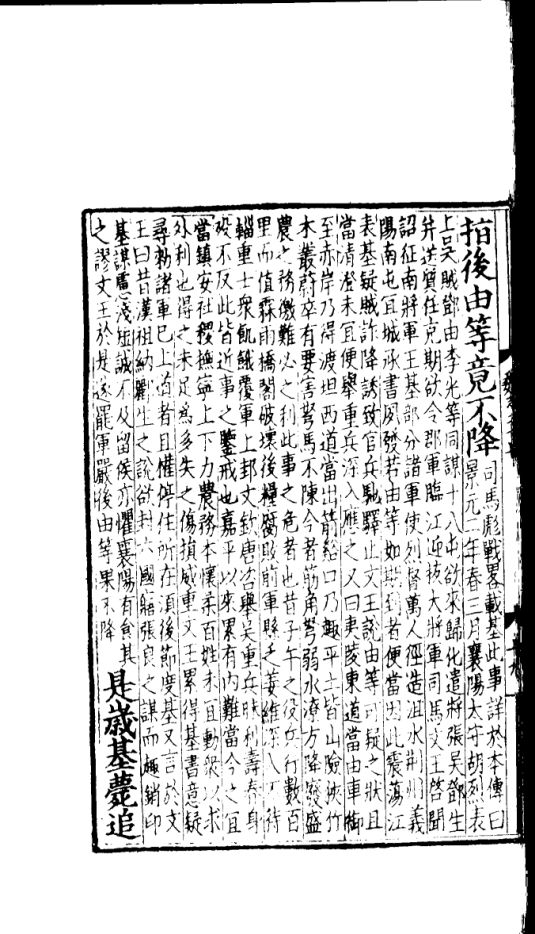 拍後由等竟不降
司馬彪戰畧載基此事詳於本傳曰
景元二年春三月襄陽太守胡烈表
上吳賊鄧由李光等同謀十八屯欲來歸化遣將張吳鄧生
并送質任克期欲令郡軍臨江迎拔大將軍司馬文王啓聞
詔征南將軍王基部分諸軍使烈督萬人徑造沮水荆州義
陽南屯宜城承書夙發若由等如期到者便當因此震蕩江
表基疑賊詐降誘致官兵馳驛止文王說由等可疑之狀且
當清澄未宜便舉重兵深入應之又曰夷陵東道當由車御
至赤岸乃得渡坦西道當出箭谿口乃趣平土皆山險狹竹
木叢蔚卒有要害弩馬不陳今者筋角弩弱水潦方降廢盛
農之務儌難必之利此事之危者也昔子午之役兵行數百
里而值霖雨橋閣破壞後糧腐敗前軍縣乏姜維深入不待
輜重士衆飢餓覆軍上邽文欽唐咨舉吳重兵昧利壽春身
歿不反此皆近事之鑒戒也嘉平以來累有內難當今之宜
當鎮安社稷撫寧上下力農務本懷柔百姓未宜動衆以求
外利也得之未足爲多失之傷損威重文王累得基書意疑
尋勑諸軍已上道者且權停住所在湏後節度基又言於文
王曰昔漢祖納酈生之說欲封六國寤張良之謀而趣銷印
基謀慮淺短誠不及留侯亦懼襄陽有食其
之謬文王於是遂罷軍嚴後由等果不降
是歲基薨追